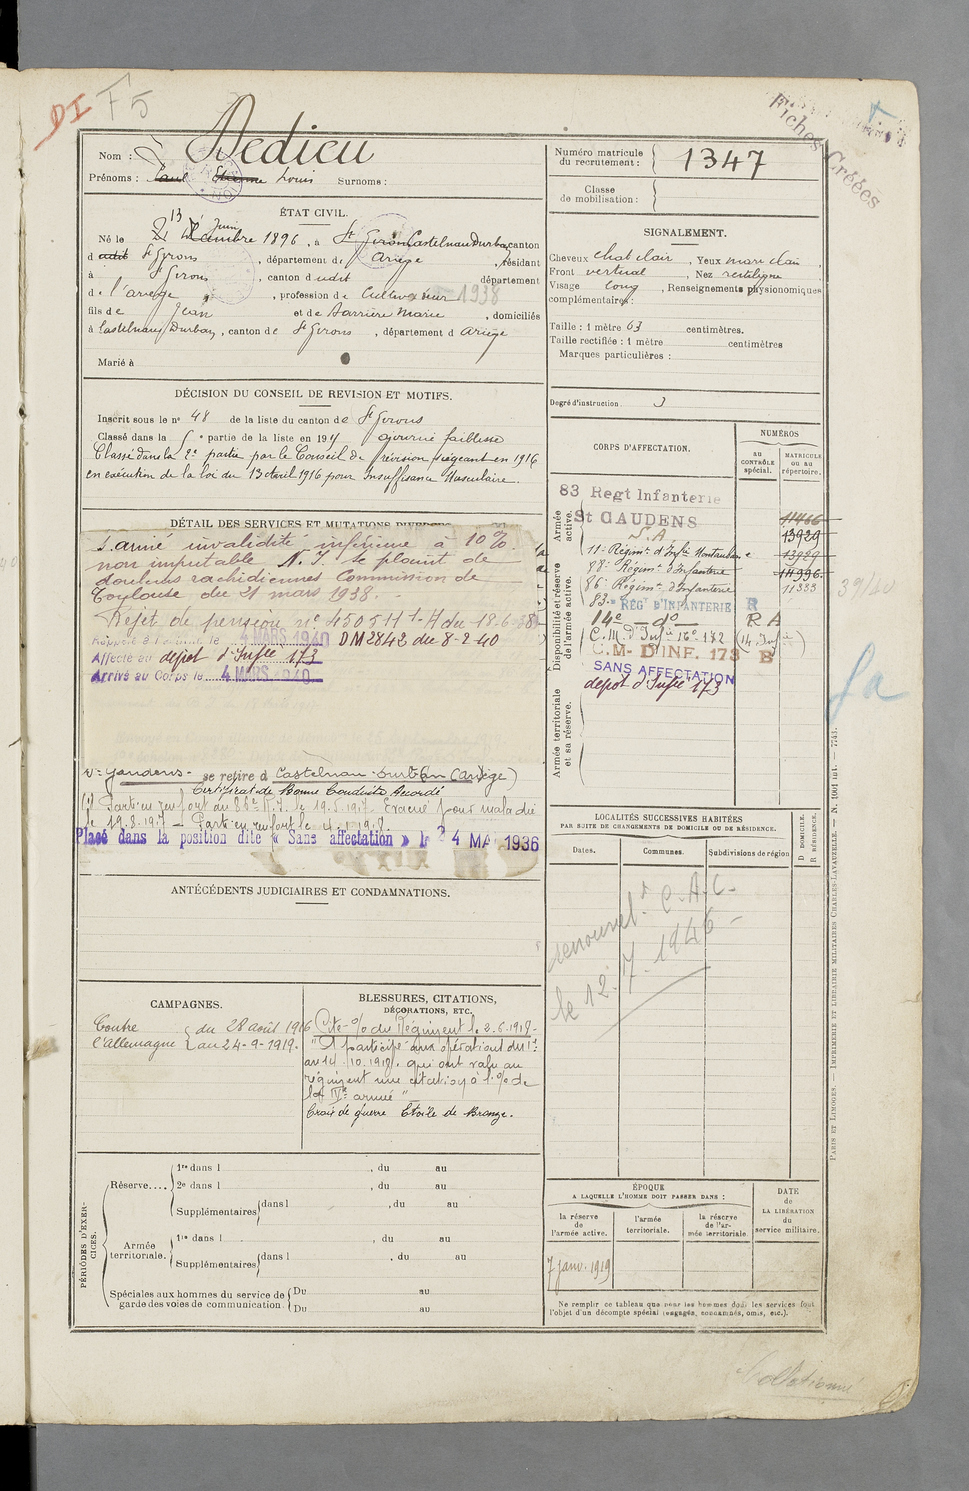 DI F5
Fiches Créées
Nom : Dedieu
Prénoms : Paul Etienne Louis Surnoms :
Numéro matricule
du recrutement : 1347
Classe
de mobilisation :
ÉTAT CIVIL.
Né le 13 Juin 1896, à St Girons Castelnau Durban, canton
d udit St Girons, département de Ariège, résidant
à St Girons, canton d udit département
d e l'ariège, profession de Cultivateur 1938
fils de Jean et de Barrière Marie, domiciliés
à Castelnau Durban, canton de St Girons, département d Ariège
Marié à
SIGNALEMENT.
Cheveux chat clair, Yeux marr clair,
Front vertical, Nez rectiligne
Visage long, Renseignements physionomiques
complémentaires :
Taille : 1 mètre 63 centimètres.
Taille rectifiée : 1 mètre centimètres
Marques particulières :
Degré d'instruction 3
DÉCISION DU CONSEIL DE REVISION ET MOTIFS.
Inscrit sous le no 48 de la liste du canton de St Girons
Classé dans la 5e partie de la liste en 191 ajourné faiblesse
Classé dans la 2e partie par le Conseil de révision siégeant en 1916
en exécution de la loi du 13 avril 1916 pour Insuffisance Musculaire.
DÉTAIL DES SERVICES ET MUTATIONS DIVERSES
invalidité inférieure à 10%.
non imputable N.I. se plaint de
douleurs rachidiennes Commission de
Toulouse du 21 mars 1938.
Rejet de pension no 45051 H du 18-6-38
Rappelé à l'activité le 4 MARS 1940 DM 2842 du 8-2-40
Affecté au dépot d'Infie 173
Arrivé au Corps le 4 MARS 1940
St Gaudens - se retire à Castelnau-Durban (Ariège)
Certificat de Bonne Conduite Accordé
(1) Parti en renfort au 88e R.I. le 19.5.1917. Evacué pour maladie
le 19.8.1917 - Parti en renfort le 4.1.1918
Placé dans la position dite « Sans affectation » le 24 MAI 1936
CORPS D'AFFECTATION.
NUMÉROS
au
CONTRÔLE
spécial.
MATRICULE
ou au
répertoire.
Armée
active.
83 Regt Infanterie
St GAUDENS 11466
S.A. 13929
11e Régimt d'Infie Montauban 13929
88e Régimt d'Infanterie 11996
Disponibilité et réserve
de l'armée active.
86e Régimt d'Infanterie 11333 39/40
83e REGt D'INFANTERIE R
14e - do - R A
C.M. d'Infie 16e 172 (14 Infie)
C.M- D'INF. 173 B
SANS AFFECTATION
dépot d'Infie 173
Armée territoriale
et sa réserve.
LOCALITÉS SUCCESSIVES HABITÉES
PAR SUITE DE CHANGEMENTS DE DOMICILE OU DE RÉSIDENCE.
Dates. Communes. Subdivisions de région
D DOMICILE.
R RÉSIDENCE.
renouvelt C.A.C.
le 12.7.1946
ANTÉCÉDENTS JUDICIAIRES ET CONDAMNATIONS.
CAMPAGNES.
Contre du 28 août 1916
l'Allemagne au 24-9-1919.
BLESSURES, CITATIONS,
DÉCORATIONS, ETC.
Cité %o du Régiment le 3.6.1919-
"A participé aux opérations du 1er
au 14.10.1918. qui ont valu au
régiment une citation à l'%o de
la IVe armée"
Croix de guerre Etoile de Bronze.
PÉRIODES D'EXER-
CICES.
Réserve....
1re dans l , du au
2e dans l , du au
Supplémentaires dans l , du au
Armée
territoriale.
1re dans l , du au
Supplémentaires dans l , du au
Spéciales aux hommes du service de
garde des voies de communication.
Du au
Du au
ÉPOQUE
A LAQUELLE L'HOMME DOIT PASSER DANS :
la réserve
de
l'armée active.
l'armée
territoriale.
la réserve
de l'ar-
mée territoriale
DATE
de
LA LIBÉRATION
du
service militaire.
7 janv. 1919
Ne remplir ce tableau que pour les hommes dont les services font
l'objet d'un décompte spécial (engagés, condamnés, omis, etc.).
PARIS ET LIMOGES. — IMPRIMERIE ET LIBRAIRIE MILITAIRES CHARLES-LAVAUZELLE. — 7743.
Collationné